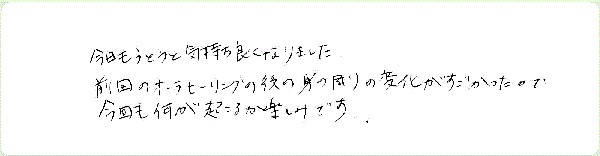 今日もうとうと気持ち良くなりました.
前回のオーラヒーリングの後の身の周りの変化がすごかったので
今回も何が起こるか楽しみです.